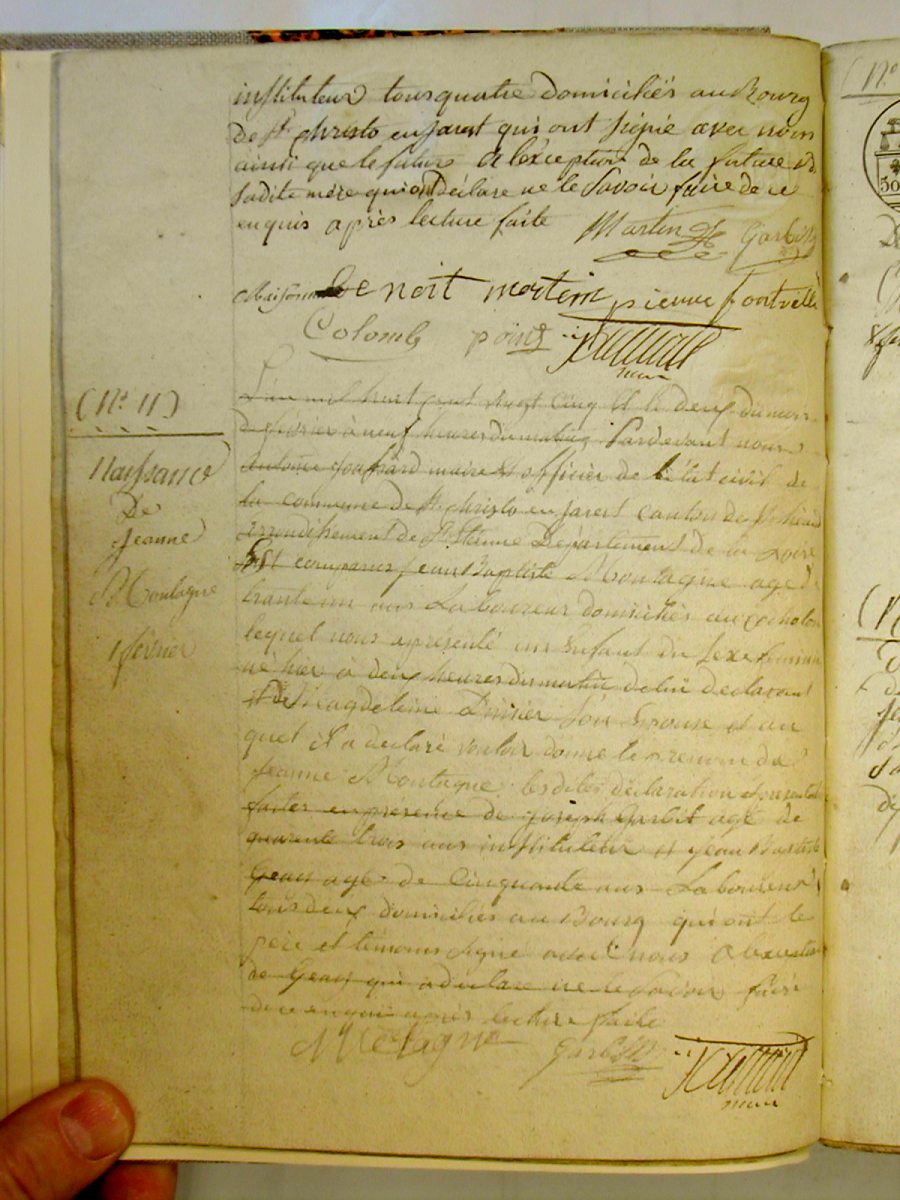 instituteur tous quatre domiciliés au Bourg
de St christo en jarest qui ont signé avec nous
ainsi que le futur a l'exception de la future et
sadite mère qui ont déclaré ne le savoir faire de ce
enquis après lecture faite Martin Garbit
Benoit martin pierre fontvielle
Colomb point
maire
(N° 11)
Naissance
De
Jeanne
Montagne
1 février
L'an mil huit cent vingt cinq et le deux du mois
de février à neuf heures du matin Pardevant nous
antoine maire et officier de l'état civil de
la commune de St christo en jarest canton de St héand
arrondissement de St Etienne Département de la Loire
Est comparus jean Baptiste Montagne agé de
trente un ans Laboureur domiciliés au
lequel nous a présenté un Enfant du sexe féminin
né hier à deux heures du matin de lui déclarant
et de Magdeleine son Epouse et au
quel il a déclaré vouloir donné le prenom de
Jeanne Montagne lesdites déclaration et présentation
faites en presence de joseph Garbit agé de
quarante trois ans instituteur et jean Baptiste
agé de Cinquante ans Laboureur
tous deux domiciliés au Bourg qui ont le
père et témoins signé avec nous a l'exception
de qui a déclaré ne le savoir faire
de ce enquis après lecture faite
Montagne Garbit
maire
N°